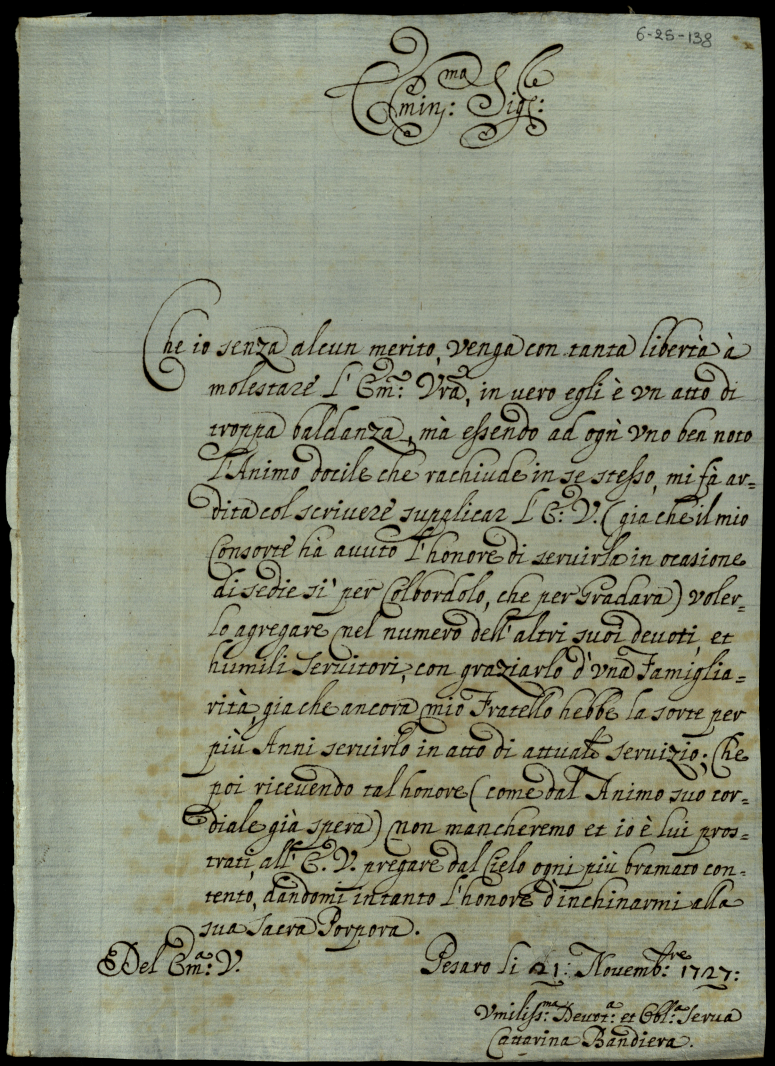 6-25-138
Emin:ma Sig:le
Che io senza alcun merito, venga con tanta libertà à
molestare l'Em:a Vra, in vero egli è vn atto di
troppa baldanza, mà essendo ad ogni vno ben noto
l'Animo docile che rachiude in se stesso, mi fà ar=
dita col scrivere supplicar l'E:a V. (gia che il mio
Consorte hà auuto l'honore di seruirla in ocasione
di sedie sì per Colbordolo, che per Gradara) voler=
lo agregare nel numero dell'altri suoi devoti, et
humili Seruitori, con graziarlo d'vna Famiglia=
rità, gia che ancora mio Fratello hebbe la sorte per
più Anni seruirlo in atto di attuale servizio; Che
poi ricevendo tal honore (come dal Animo suo cor=
diale già spera) non mancheremo et io è lui pros=
trati, all'E:a V. pregare dal Cielo ogni più bramato con=
tento, dandomi intanto l'honore d'inchinarmi alla
sua Sacra Porpora.
Del Em:a V.
Pesaro li 21: Novemb:re 1727:
Vmiliss:ma Deuot:a et Obl:a Serua
Catarina Bandiera.